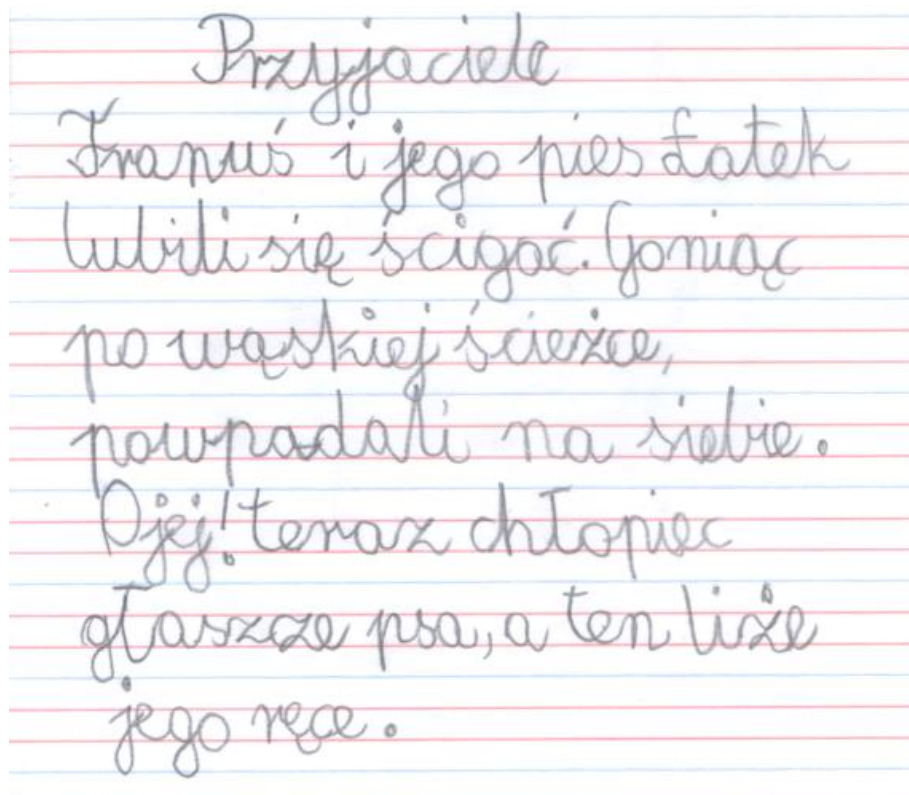 Przyjaciele
Franuś i jego pies Łatek
lubili się ścigać. Goniąc
po wąskiej ścieżce,
powpadali na siebie.
Ojej! teraz chłopiec
głaszcze psa, a ten liże
jego ręce.